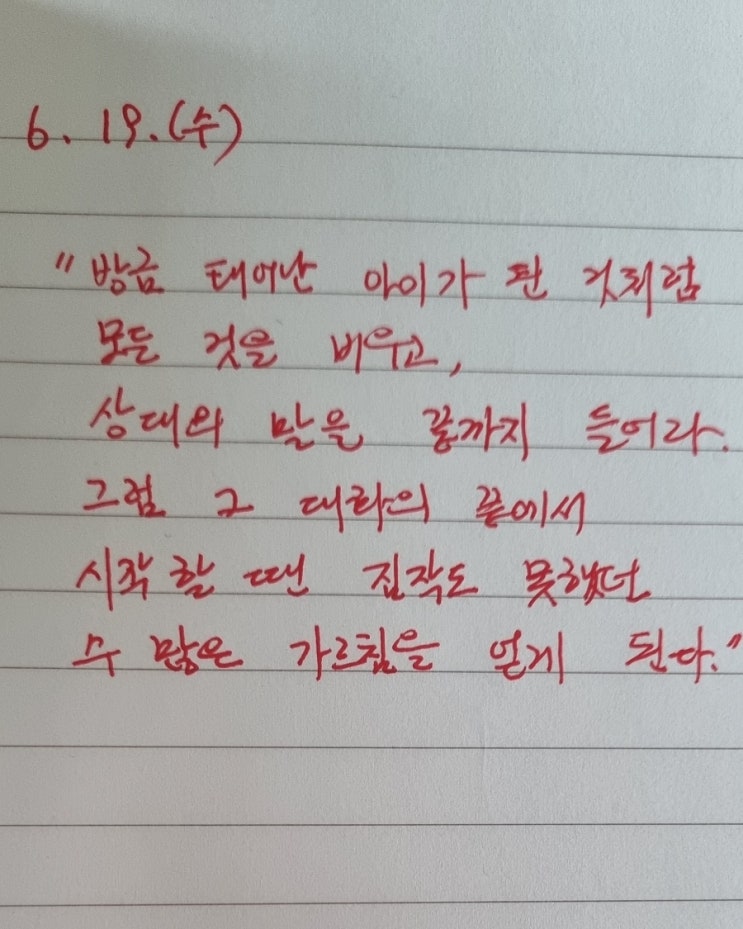 6. 19. (수)
"방금 태어난 아이가 된 것처럼
모든 것을 비우고,
상대의 말을 끝까지 들어라.
그럼 그 대화의 끝에서
시작 할 땐 짐작도 못했던
수 많은 가르침을 얻게 된다."